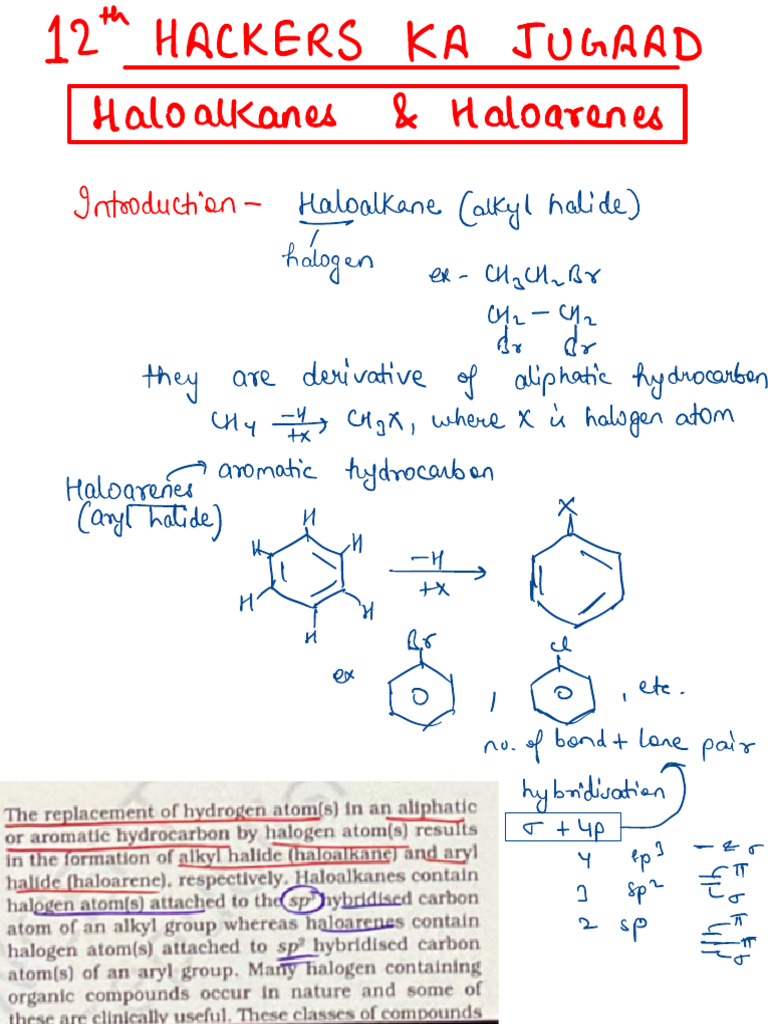 12th HACKERS KA JUGAAD
Haloalkanes & Haloarenes
Introduction - Haloalkane (alkyl halide)
halogen
ex - CH3CH2Br
CH2 - CH2
Br Br
they are derivative of aliphatic hydrocarbon
CH4 -H +X → CH3X, where X is halogen atom
Haloarenes → aromatic hydrocarbon
(aryl halide)
H X
H H
-H
+X
H H
H
Br Cl
ex , , etc.
no. of bond + lone pair
hybridisation
σ + lp
4 sp3 - σ
3 sp2 = π σ
2 sp ≡ π π σ
The replacement of hydrogen atom(s) in an aliphatic
or aromatic hydrocarbon by halogen atom(s) results
in the formation of alkyl halide (haloalkane) and aryl
halide (haloarene), respectively. Haloalkanes contain
halogen atom(s) attached to the sp3 hybridised carbon
atom of an alkyl group whereas haloarenes contain
halogen atom(s) attached to sp2 hybridised carbon
atom(s) of an aryl group. Many halogen containing
organic compounds occur in nature and some of
these are clinically useful. These classes of compounds